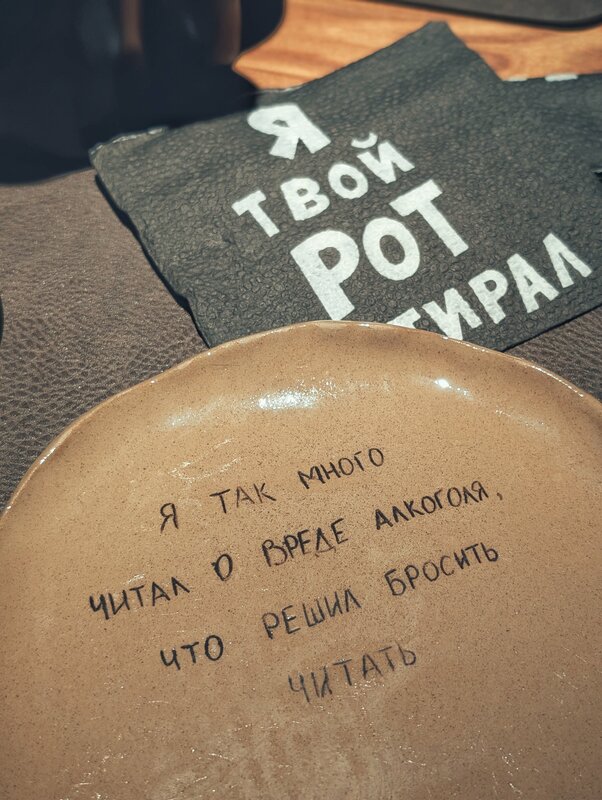 Я
ТВОЙ
РОТ
ТИРАЛ
Я ТАК МНОГО
ЧИТАЛ О ВРЕДЕ АЛКОГОЛЯ,
ЧТО РЕШИЛ БРОСИТЬ
ЧИТАТЬ